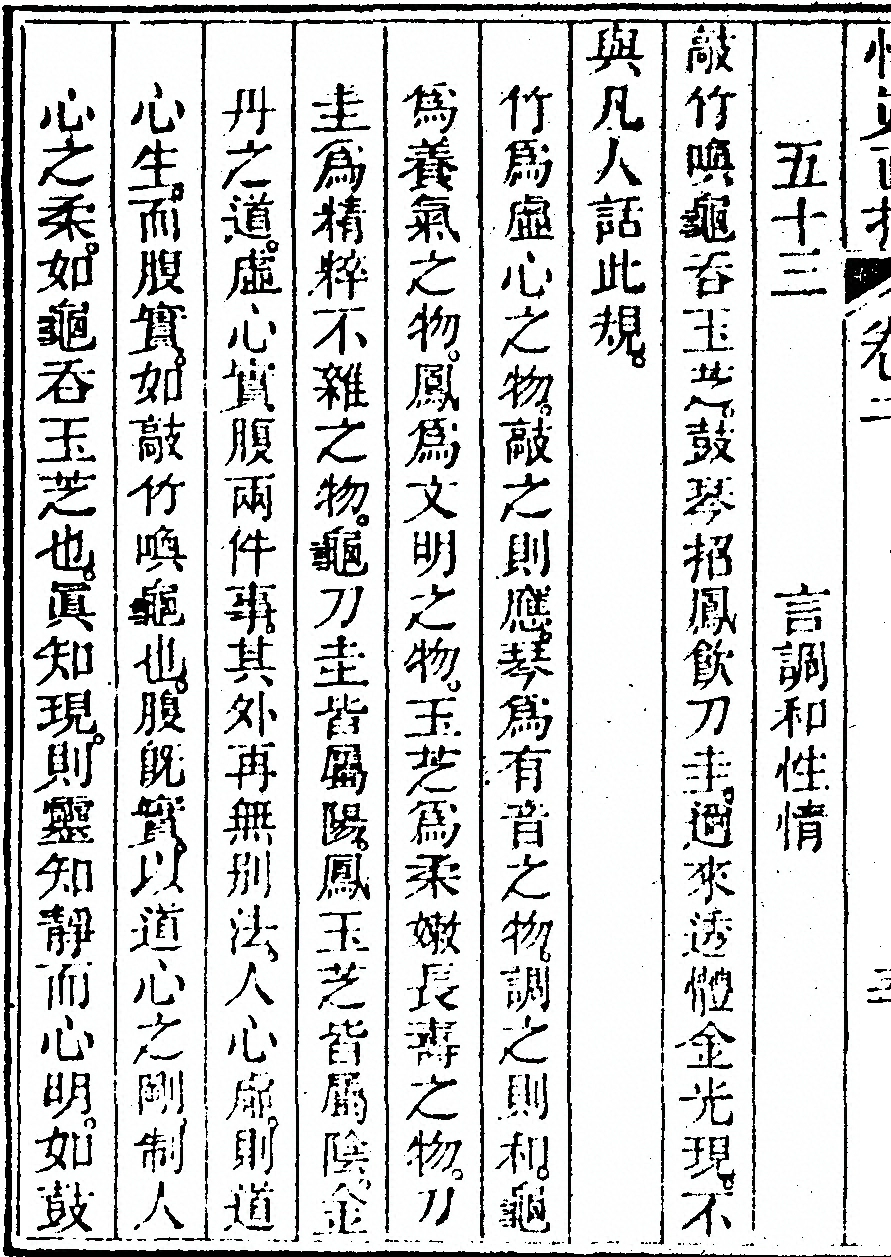 五十三　言調和性情
敲竹喚龜吞玉芝。鼓琴招鳳飲刀圭。邇來透體金光現。不
與凡人話此規。
竹爲虛心之物。敲之則應。琴爲有音之物。調之則和。龜
爲養氣之物。鳳爲文明之物。玉芝爲柔嫩長壽之物。刀
圭爲精粹不雜之物。龜刀圭皆屬陽。鳳玉芝皆屬陰。金
丹之道。虛心實腹兩件事。其外再無別法。人心虛。則道
心生。而腹實。如敲竹喚龜也。腹旣實。以道心之剛制人
心之柔。如龜吞玉芝也。眞知現。則靈知靜而心明。如鼓